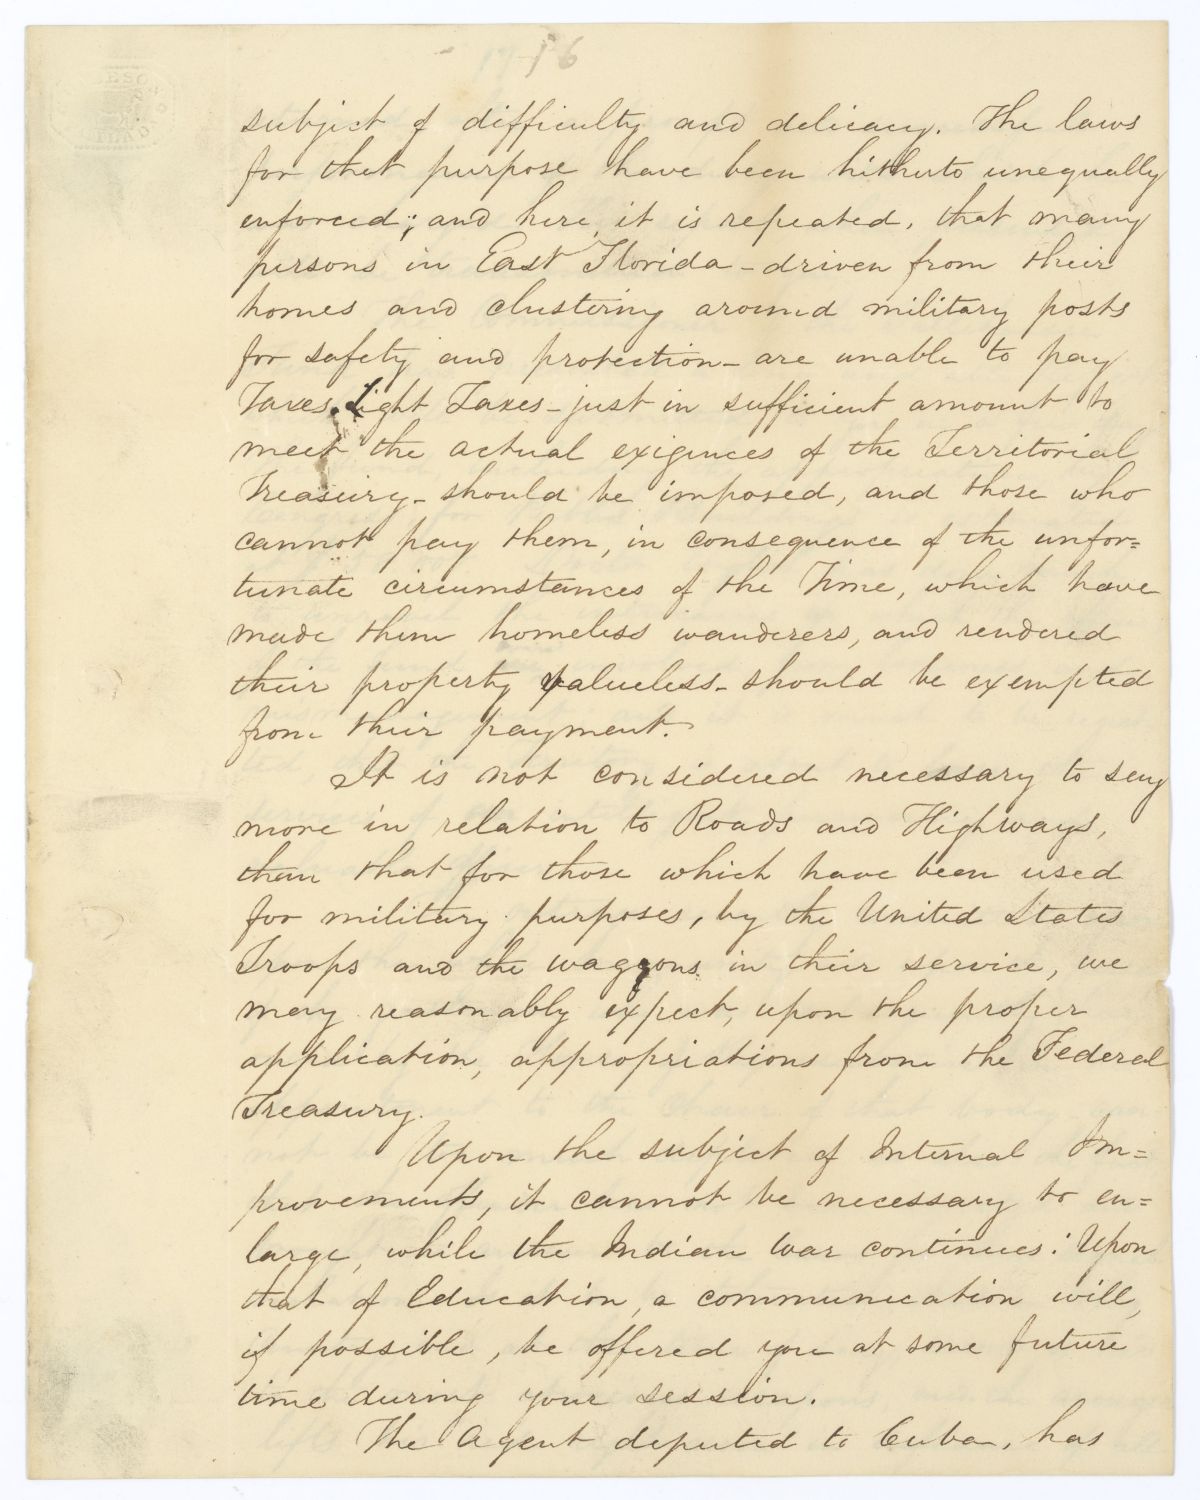 16
subject of difficulty and delicacy. The laws
for that purpose have been hitherto unequally
enforced; and here, it is repeated, that many
persons in East Florida - driven from their
homes and clustering around military posts
for safety and protection - are unable to pay
Taxes. Light Taxes - just in sufficient amount to
meet the actual exigences of the Territorial
Treasury - should be imposed, and those who
cannot pay them, in consequence of the unfor=
tunate circumstances of the Time, which have
made them homeless wanderers, and rendered
their property valueless - should be exempted
from their payment.
It is not considered necessary to say
more in relation to Roads and Highways,
than that for those which have been used
for military purposes, by the United States
Troops and the waggons in their service, we
may reasonably expect, upon the proper
application, appropriations from the Federal
Treasury.
Upon the subject of Internal Im=
provements, it cannot be necessary to en=
large, while the Indian War continues: Upon
that of Education, a communication will,
if possible, be offered you at some future
time during your session.
The Agent deputed to Cuba, has